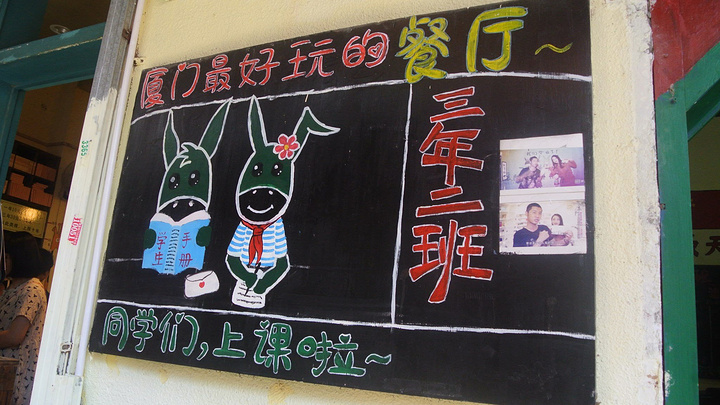 厦门最好玩的餐厅~
三年二班
学生
手册
同学们,上课啦~